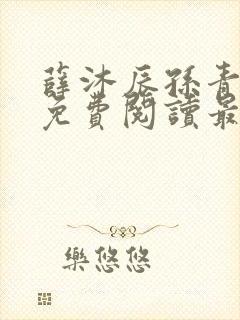 薛沐辰孫青
免費閱讀最
樂悠悠